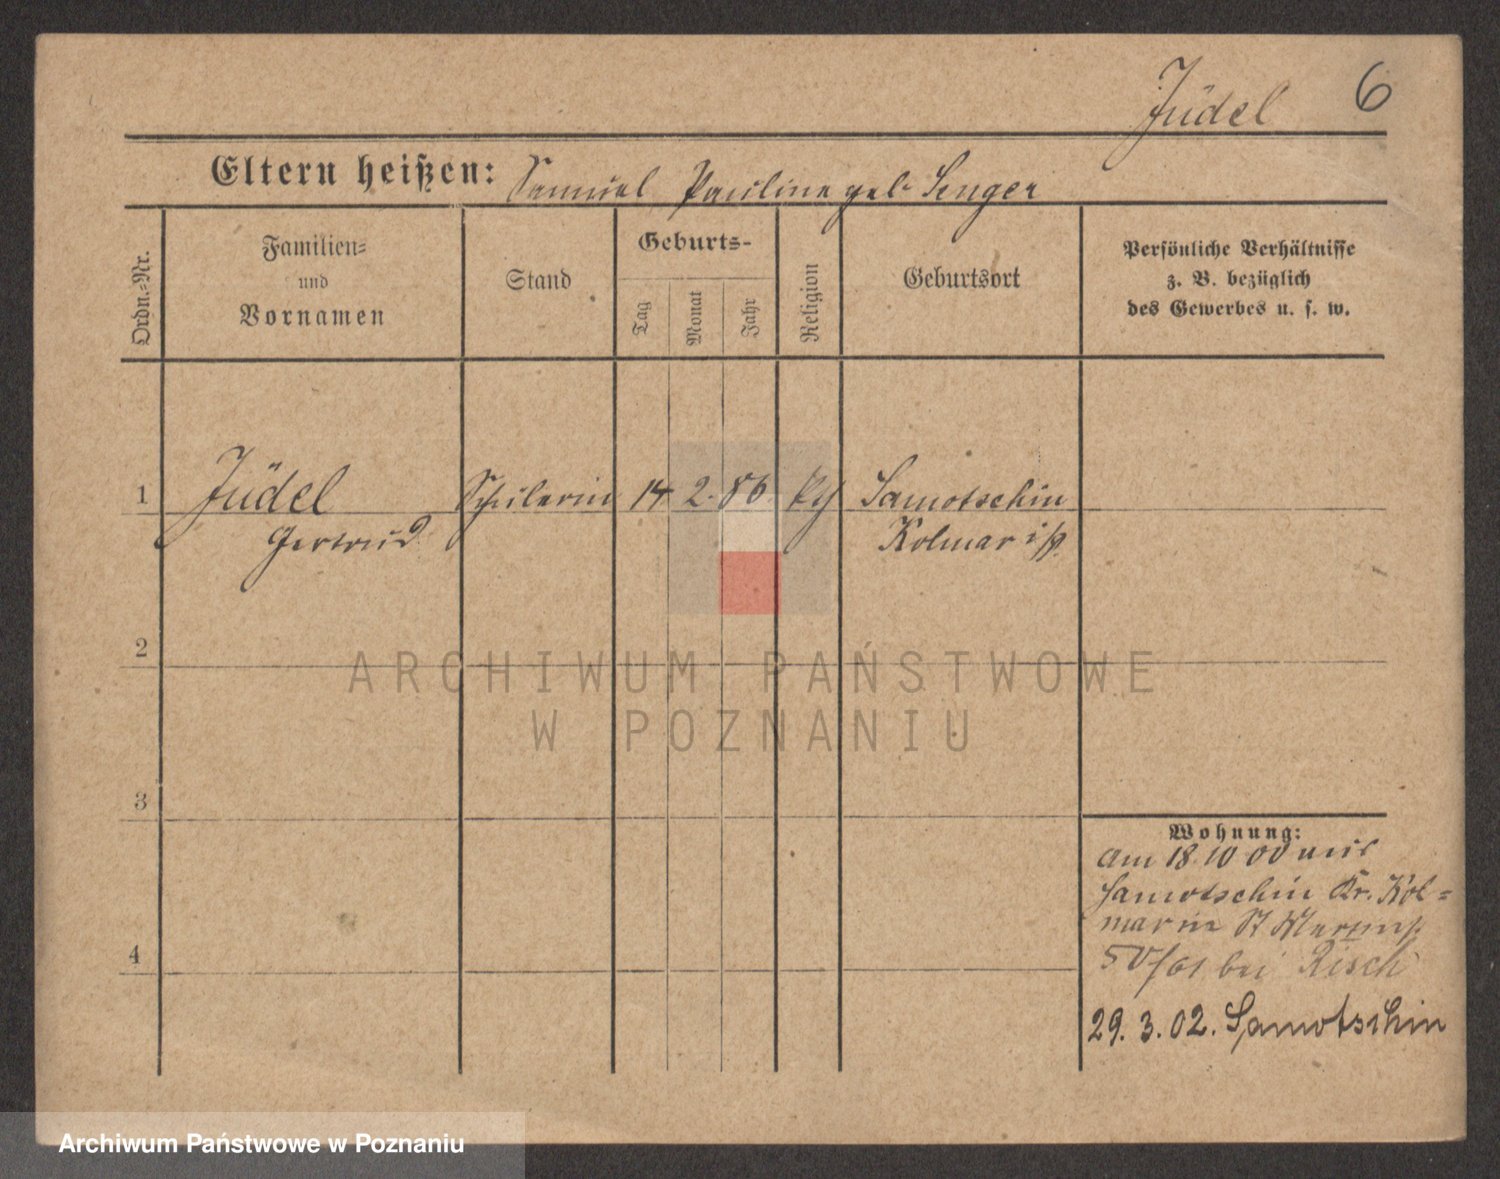 Jüdel 6
Eltern heißen: Samuel Pauline geb. Senger
Ordn.-Nr.
Familien- und Vornamen
Stand
Geburts-
Tag
Monat
Jahr
Religion
Geburtsort
Persönliche Verhältnisse
z. B. bezüglich
des Gewerbes u. s. w.
1 Jüdel Schülerin 14 2. 86 Samotschin
Gertrud Kolmar i/p.
2
ARCHIWUM PAŃSTWOWE
W POZNANIU
3
Wohnung:
am 18 10 00 aus
Samotschin Kr. Kol=
mar in St
4
50/01 bei Risch
29. 3. 02. Samotschin
Archiwum Państwowe w Poznaniu